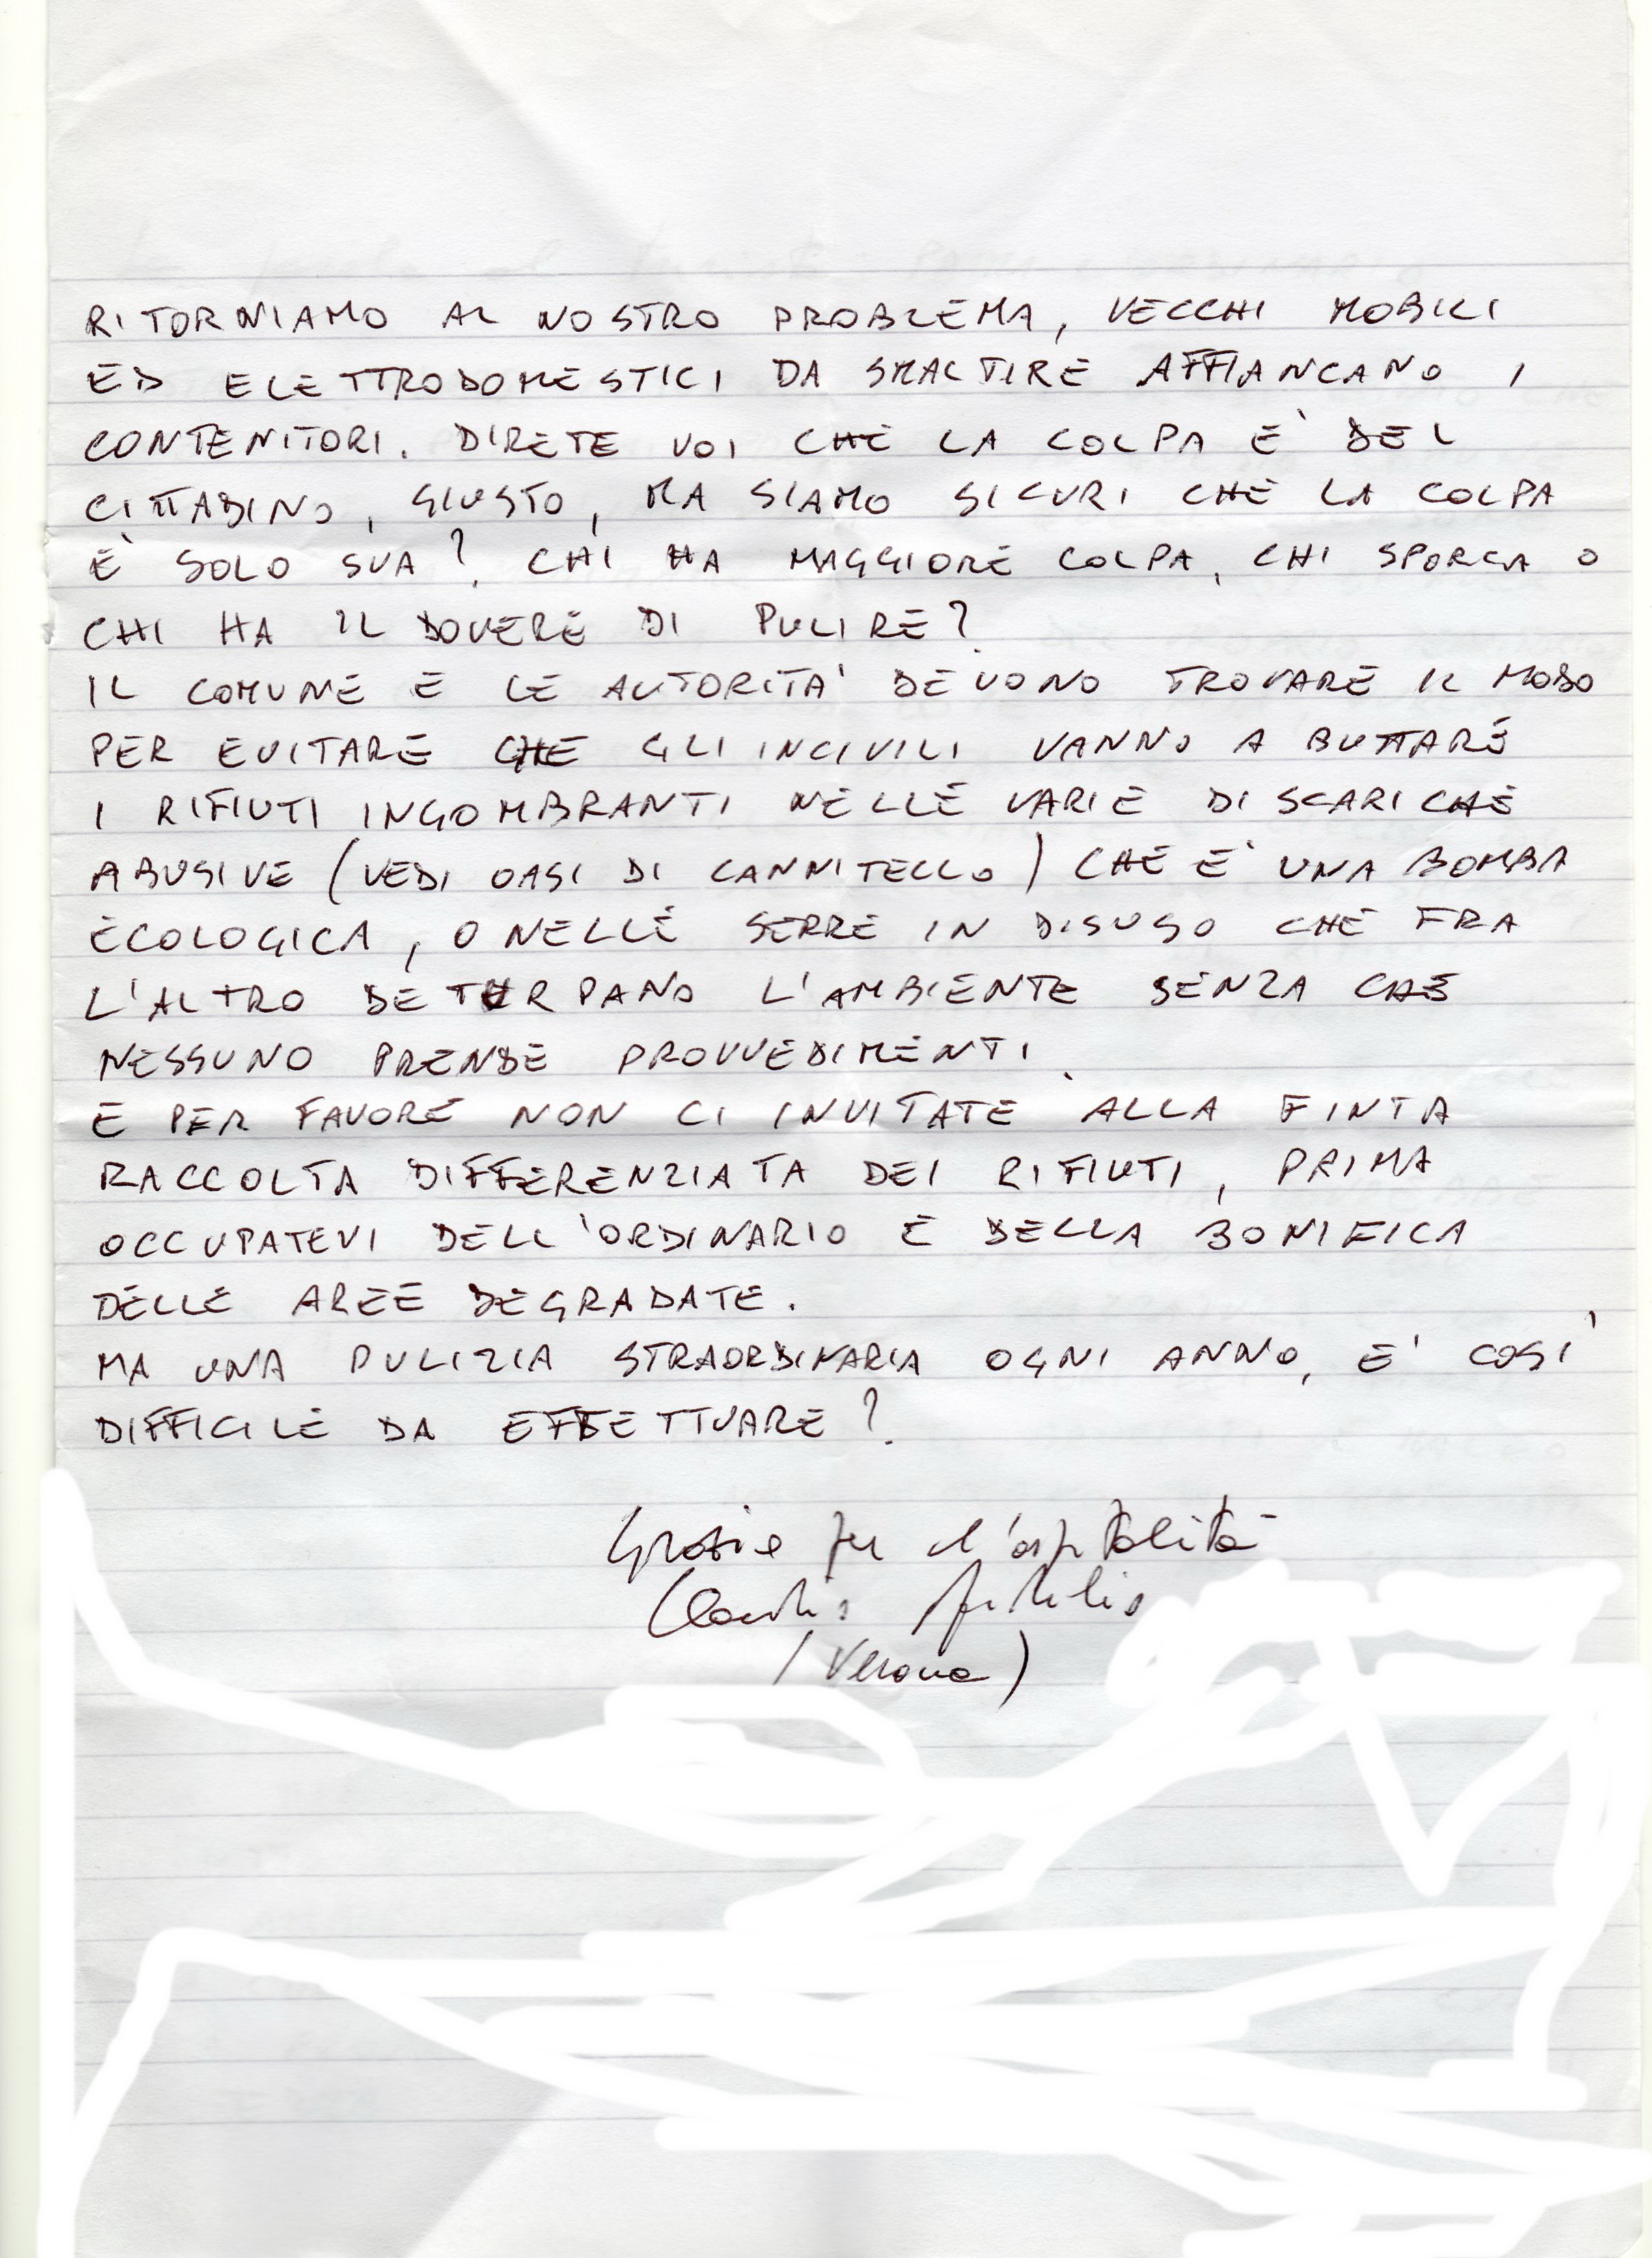 RITORNIAMO AL NOSTRO PROBLEMA, VECCHI MOBILI
ED ELETTRODOMESTICI DA SMALTIRE AFFIANCANO I
CONTENITORI. DIRETE VOI CHE LA COLPA E' DEL
CITTADINO, GIUSTO, MA SIAMO SICURI CHE LA COLPA
E' SOLO SUA? CHI HA MAGGIORE COLPA, CHI SPORCA O
CHI HA IL DOVERE DI PULIRE?
IL COMUNE E LE AUTORITA' DEVONO TROVARE IL MODO
PER EVITARE CHE GLI INCIVILI VANNO A BUTTARE
I RIFIUTI INGOMBRANTI NELLE VARIE DISCARICHE
ABUSIVE (VEDI OASI DI CANNITELLO) CHE E' UNA BOMBA
ECOLOGICA, O NELLE SERRE IN DISUSO CHE FRA
L'ALTRO DETURPANO L'AMBIENTE SENZA CHE
NESSUNO PRENDE PROVVEDIMENTI.
E PER FAVORE NON CI INVITATE ALLA FINTA
RACCOLTA DIFFERENZIATA DEI RIFIUTI, PRIMA
OCCUPATEVI DELL'ORDINARIO E DELLA BONIFICA
DELLE AREE DEGRADATE.
MA UNA PULIZIA STRAORDINARIA OGNI ANNO, E' COSI'
DIFFICILE DA EFFETTUARE?
Grazie per l'ospitalità
(Verona)